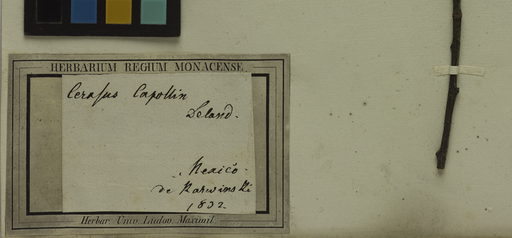 HERBARIUM REGIUM MONACENSE.
Cerasus Capollin
Deland.
Mexico
de Karwinski
1832
Herbar. Univ. Ludov. Maximil.